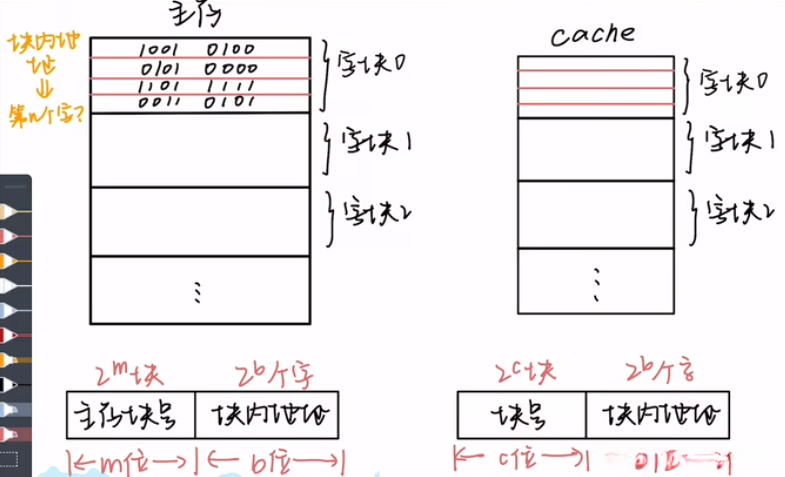 主存
块内地
址
⇓
第n个字?
1001 0100
0101 0000
1101 1111
0011 0101
字块0
字块1
字块2
⋮
cache
字块0
字块1
字块2
⋮
2^m块 2^b个字
主存块号 块内地址
|← m位 →|← b位 →|
2^c块 2^b个字
块号 块内地址
|← c位 →|